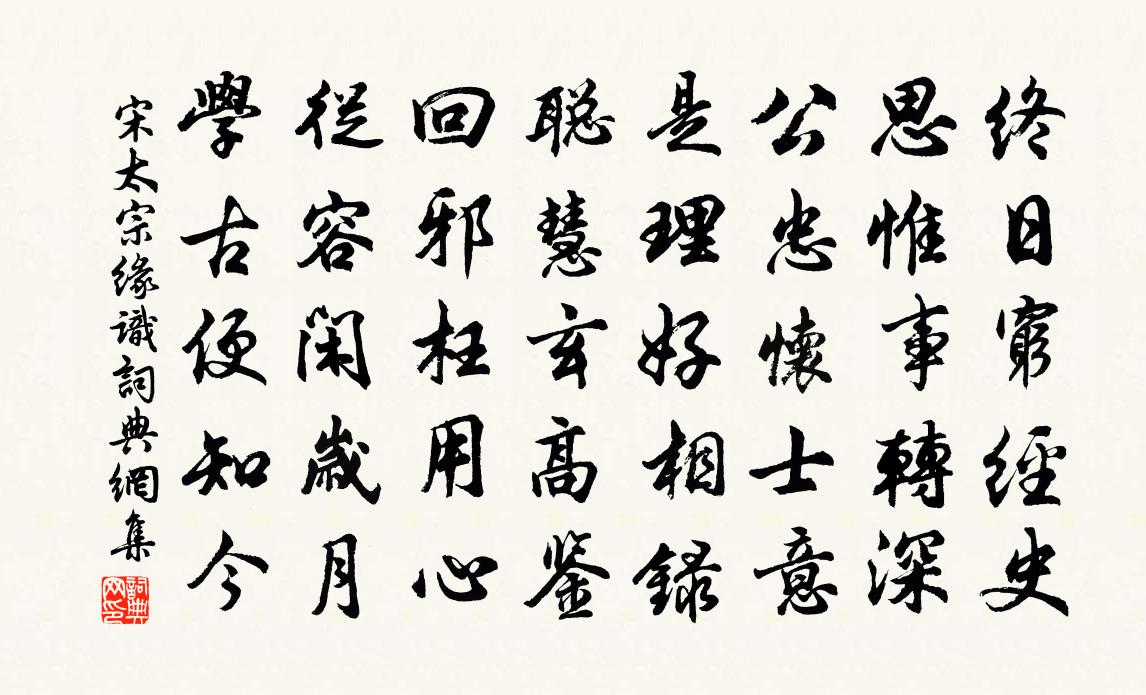 終日窮經史
思惟事轉深
公忠懷士意
是理好相錄
聡慧玄高鉴
回邪枉用心
從容闲歲月
學古便知今
宋太宗緣識詞典網集
詞典
网印